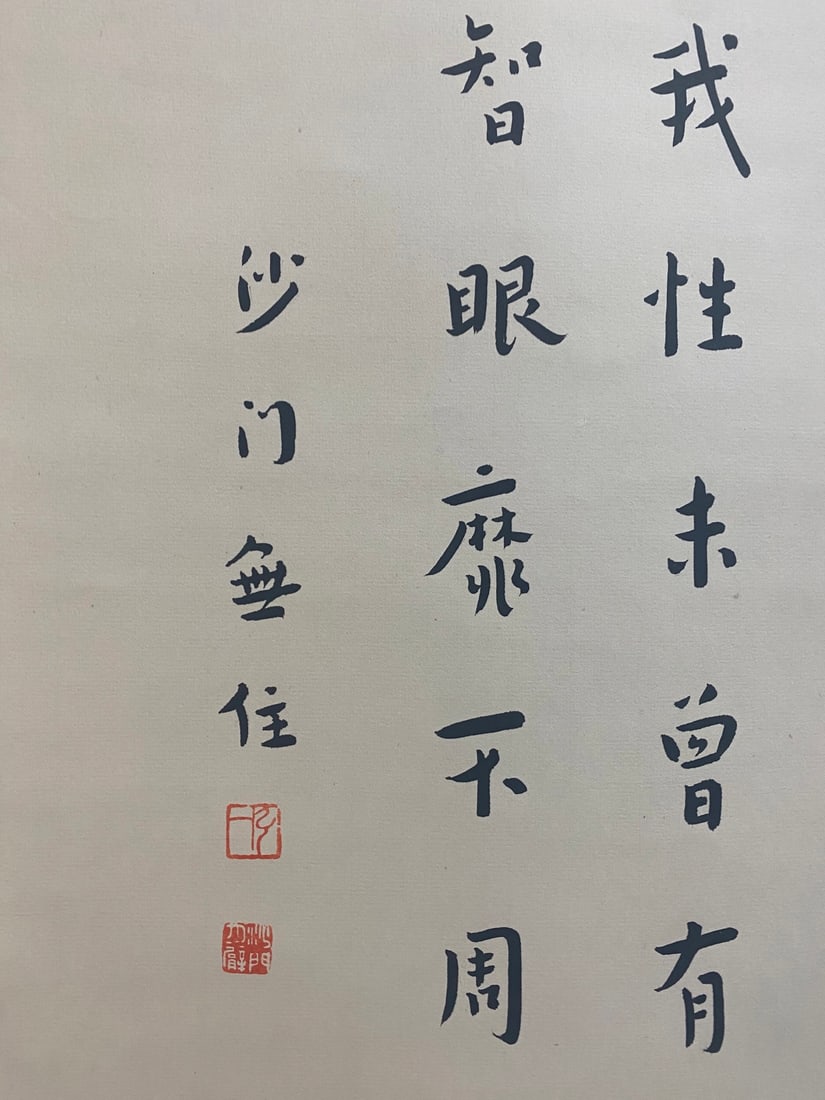 我性未曾有
智眼靡不周
沙门無住
沙門